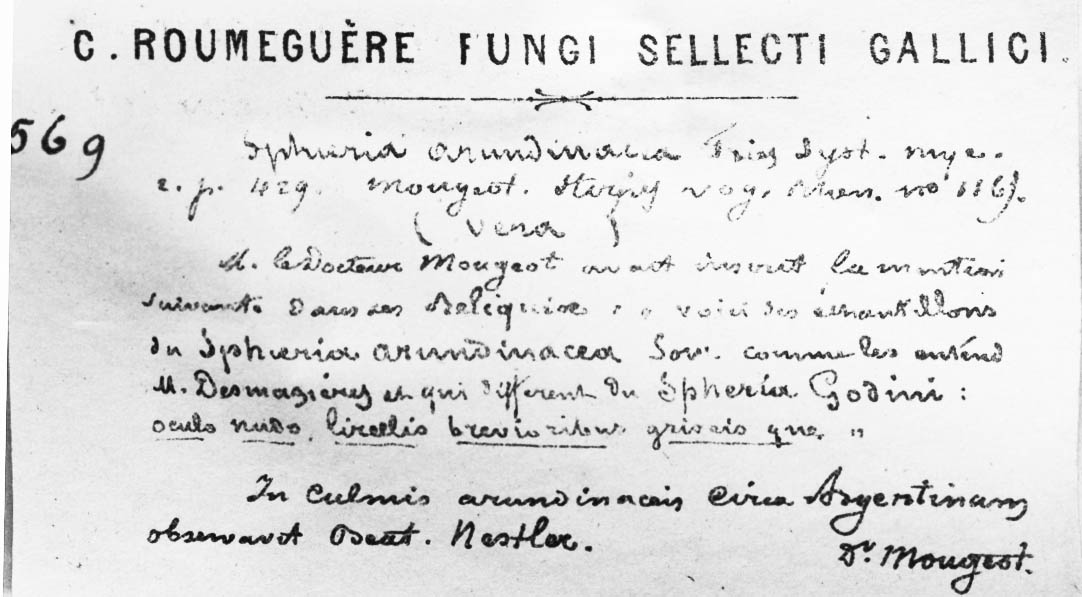 C. ROUMEGUÈRE FUNGI SELLECTI GALLICI.
569
Spheria arundinacea Fries Syst. myc.
2. p. 429. Mougeot. Stirp. vog. rhen. no
(Vera)
M. le Docteur Mougeot avait inscrit la mention
suivante dans ses Reliquiae : « voici des échantillons
du Spheria arundinacea Sow. comme les entend
M. Desmazières et qui different du Spheria Godini :
oculo nudo, lirellis brevioribus griseis que. "
In Culmis arundinaceis circa Argentinam
observavit Beat. Nestler.
Dr. Mougeot.